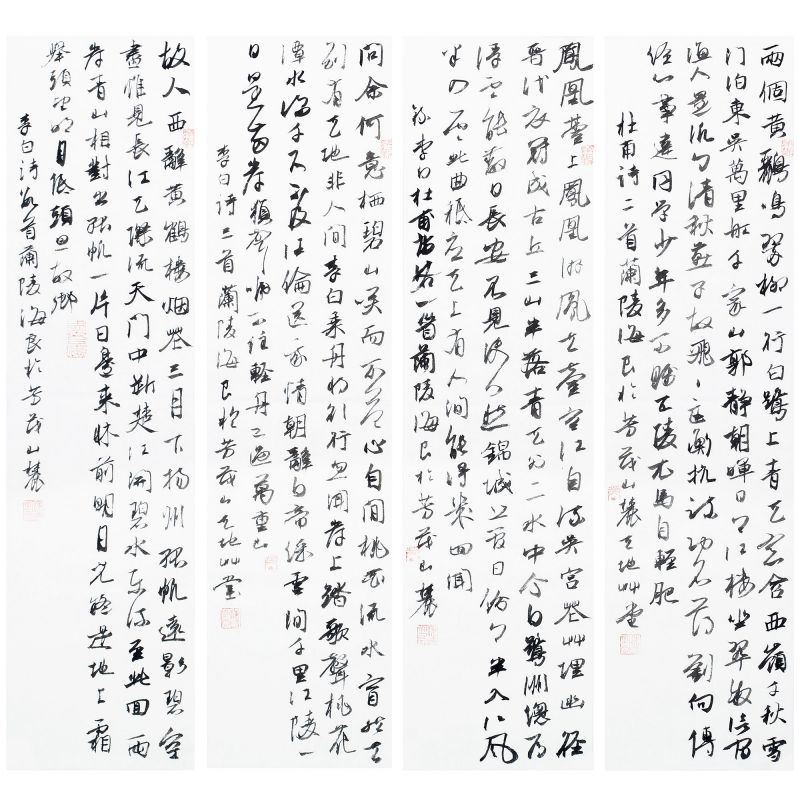 兩個黃鸝鳴翠柳一行白鷺上青天窗含西嶺千秋雪
門泊東吳萬里船千家山郭靜朝暉日日江樓坐翠微信宿
漁人還汎汎清秋燕子故飛飛匡衡抗疏功名薄劉向傳
經心事違同學少年多不賤五陵衣馬自輕肥
杜甫詩二首蘭陵海民於芳茂山麓天地艸堂
鳳凰臺上鳳凰游鳳去臺空江自流吳宮花艸埋幽徑
晉代衣冠成古丘三山半落青天外二水中分白鷺洲總為
浮雲能蔽日長安不見使人愁錦城絲管日紛紛半入江風
半入雲此曲祇應天上有人間能得幾回聞
錄李白杜甫詩各一首蘭陵海民於芳茂山麓
問余何意栖碧山笑而不答心自閒桃花流水窅然去
別有天地非人間李白乘舟將欲行忽聞岸上踏歌聲桃花
潭水深千尺不及汪倫送我情朝辭白帝綵雲間千里江陵一
日還兩岸猿聲啼不住輕舟已過萬重山
李白詩三首蘭陵海民於芳茂山天地艸堂
故人西辭黃鶴樓烟花三月下揚州孤帆遠影碧空
盡惟見長江天際流天門中斷楚江開碧水東流至此回兩
岸青山相對出孤帆一片日邊來牀前明月光疑是地上霜
舉頭望明月低頭思故鄉
李白詩數首蘭陵海民於芳茂山麓